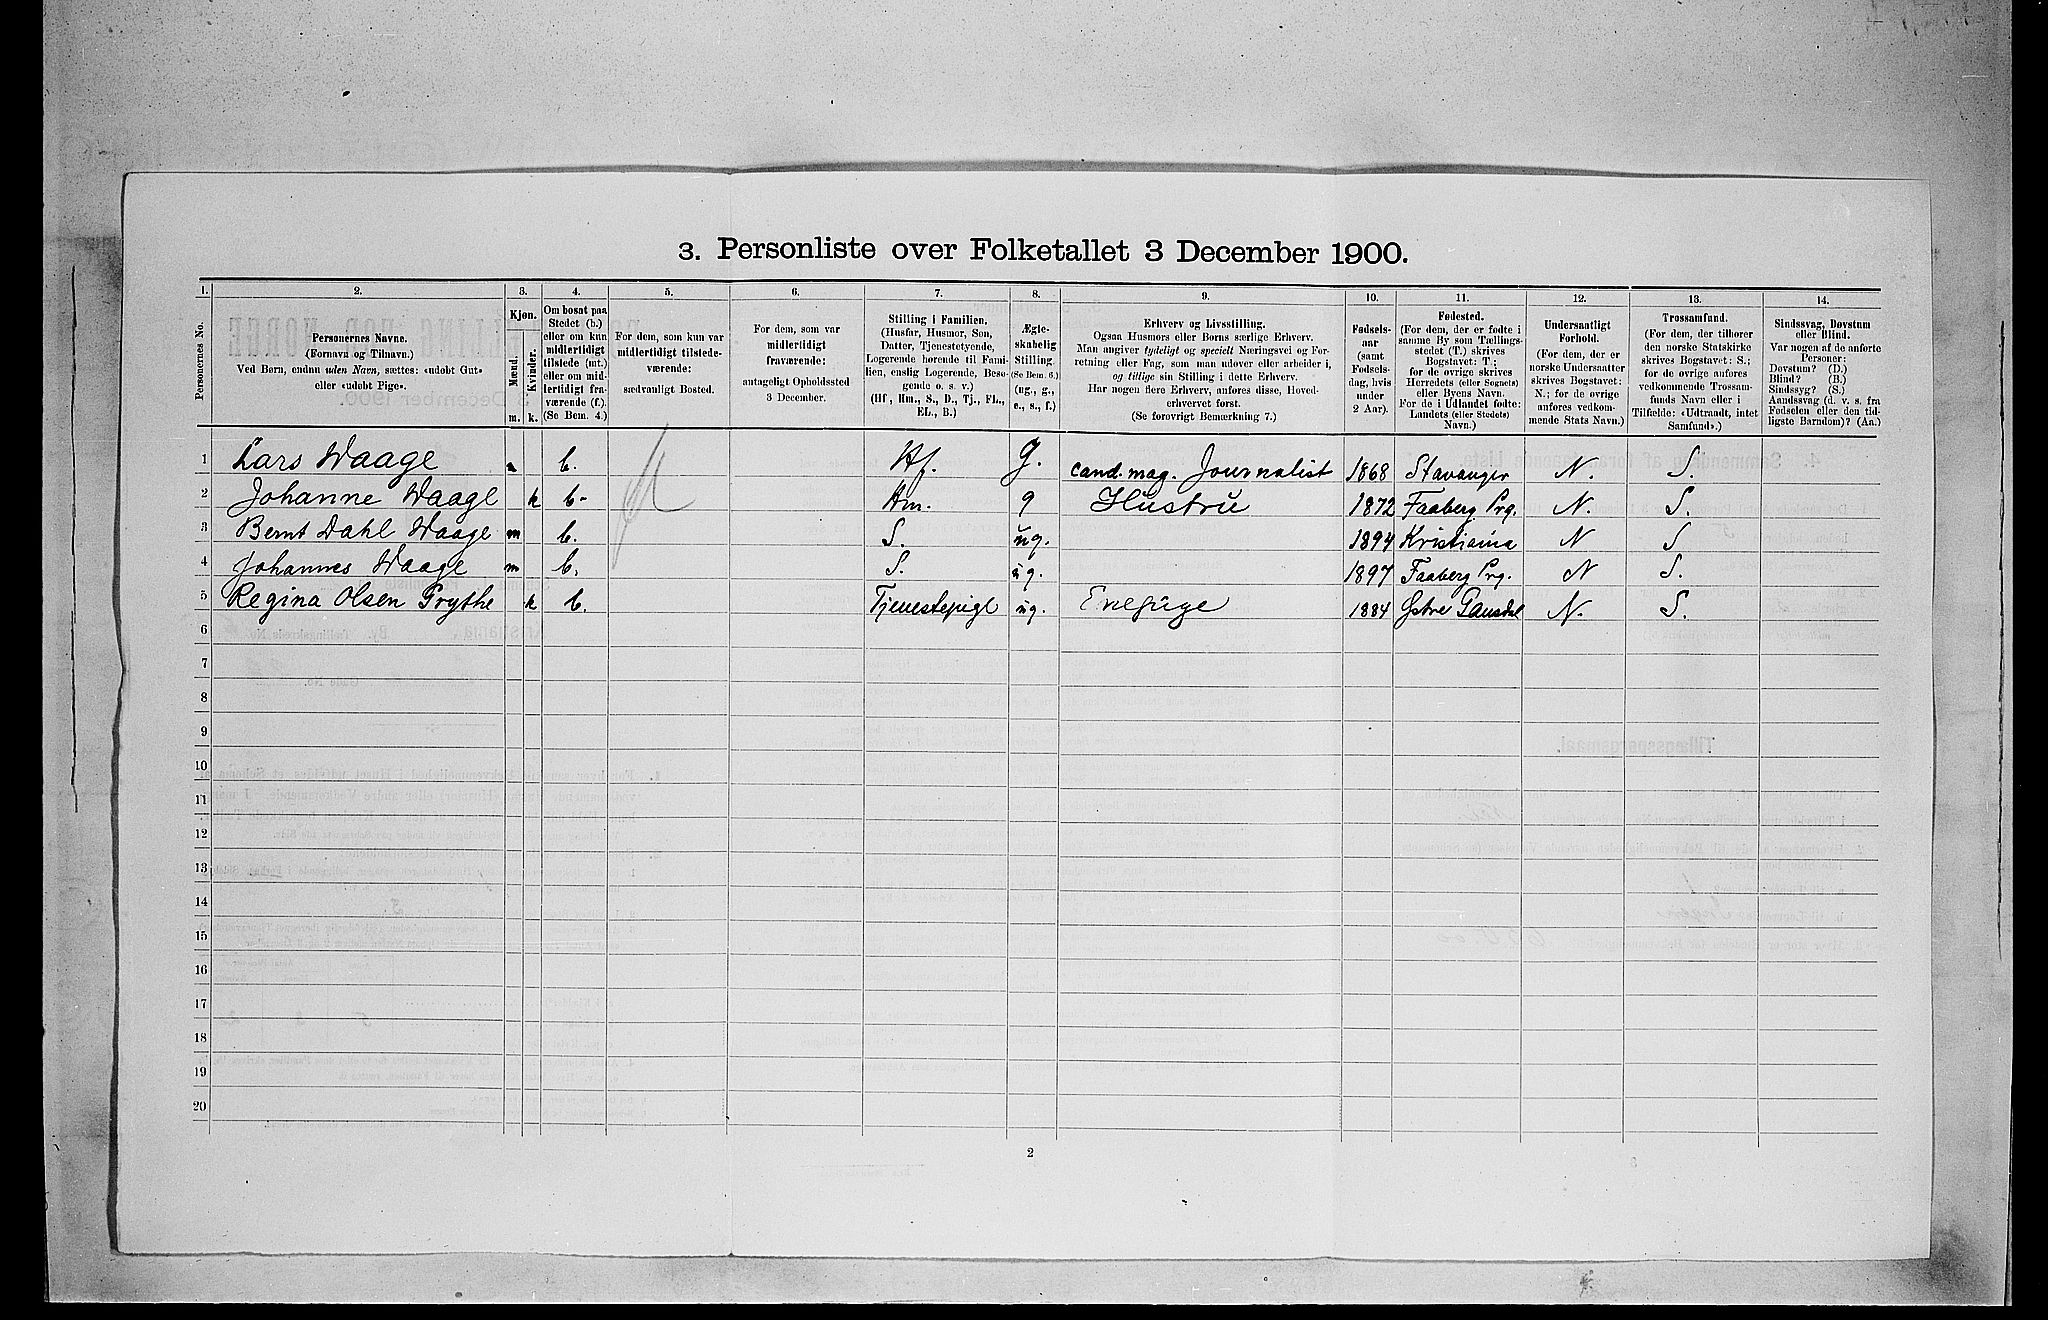 3. Personliste over Folketallet 3 December 1900.
1. 2. 3. 4. 5. 6. 7. 8. 9. 10. 11. 12. 13. 14.
Personernes No.
Personernes Navne.
(Fornavn og Tilnavn.)
Ved Børn, endnu uden Navn, sættes: «udøbt Gut»
eller «udøbt Pige».
Kjøn.
Mænd.
Kvinder.
m. k.
Om bosat paa
Stedet (b.)
eller om kun
midlertidigt
tilstede (mt.)
eller om mid-
lertidigt fra-
værende (f.).
(Se Bem. 4.)
For dem, som kun var
midlertidigt tilstede-
værende:
sædvanligt Bosted.
For dem, som var
midlertidigt
fraværende:
antageligt Opholdssted
3 December.
Stilling i Familien.
(Husfar, Husmor, Søn,
Datter, Tjenestetyende,
Logerende hørende til Fami-
lien, enslig Logerende, Besø-
gende o. s. v.)
(Hf, Hm., S., D., Tj., FL.,
EL., B.)
Ægte-
skabelig
Stilling.
(Se Bem. 6.)
(ug., g.,
e., s., f.)
Erhverv og Livsstilling.
Ogsaa Husmors eller Børns særlige Erhverv.
Man angiver tydeligt og specielt Næringsvei og For-
retning eller Fag, som man udøver eller arbeider i,
og tillige sin Stilling i dette Erhverv.
Har nogen flere Erhverv, anføres disse, Hoved-
erhvervet først.
(Se forøvrigt Bemærkning 7.)
Fødsels-
aar
(samt
Fødsels-
dag, hvis
under
2 Aar).
Fødested.
(For dem, der er fødte i
samme By som Tællings-
stedet (T.) skrives
Bogstavet: T.;
for de øvrige skrives
Herredets (eller Sognets)
eller Byens Navn.
For de i Udlandet fødte:
Landets (eller Stedets)
Navn.)
Undersaatligt
Forhold.
(For dem, der er
norske Undersaatter
skrives Bogstavet:
N.; for de øvrige
anføres vedkom-
mende Stats Navn.)
Trossamfund.
(For dem, der tilhører
den norske Statskirke
skrives Bogstavet: S.;
for de øvrige anføres
vedkommende Trossam-
funds Navn eller i
Tilfælde: «Udtraadt, intet
Samfund».)
Sindssvag, Døvstum
eller Blind.
Var nogen af de anførte
Personer:
Døvstum? (D.)
Blind? (B.)
Sindssyg? (S.)
Aandssvag (d. v. s. fra
Fødselen eller den tid-
ligste Barndom)? (Aa.)
1 Lars Waage b. Hf. g. cand. mag. Journalist 1868 Stavanger N. S.
2 Johanne Waage k b. Hm. g Hustru 1872 Faaberg Prg. N. S.
3 Bernt Dahl Waage m b. S. ug. 1894 Kristiania N S
4 Johannes Waage m b. S. ug. 1897 Faaberg Prg. N S.
5 Regina Olsen Grythe k b. Tjenestepige ug. Enepige 1884 Østre Gausdal N. S.
6
7
8
9
10
11
12
13
14
15
16
17
18
19
20
2